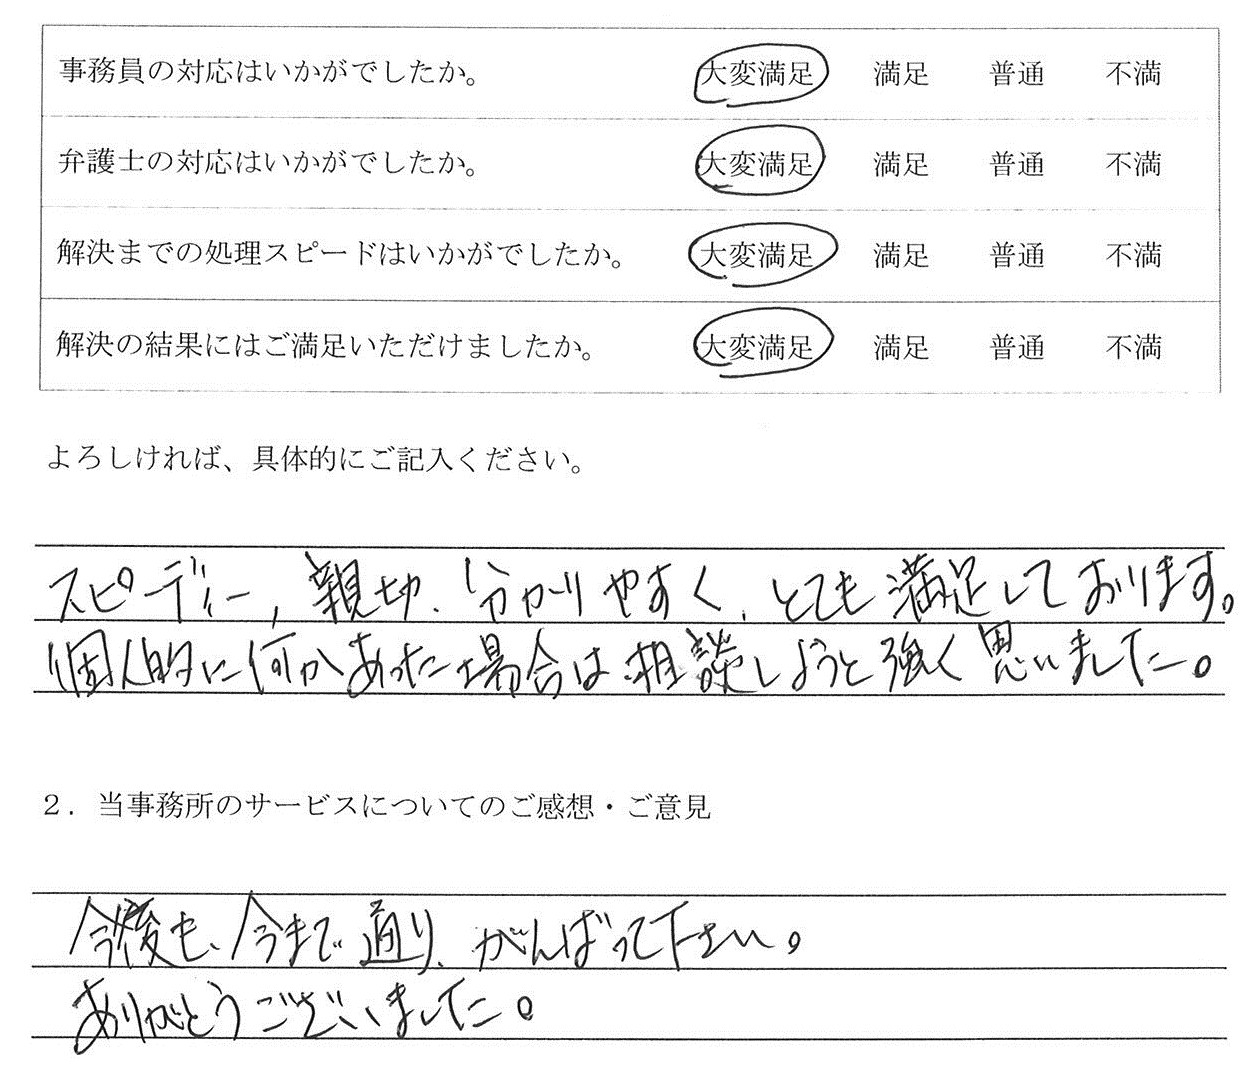 事務員の対応はいかがでしたか。 大変満足 満足 普通 不満
弁護士の対応はいかがでしたか。 大変満足 満足 普通 不満
解決までの処理スピードはいかがでしたか。 大変満足 満足 普通 不満
解決の結果にはご満足いただけましたか。 大変満足 満足 普通 不満
よろしければ、具体的にご記入ください。
スピーディー, 親切、分かりやすく、とても満足しております。
個人的に何かあった場合は相談しようと強く思いました。
2．当事務所のサービスについてのご感想・ご意見
今後も、今まで通り、がんばって下さい。
ありがとうございました。